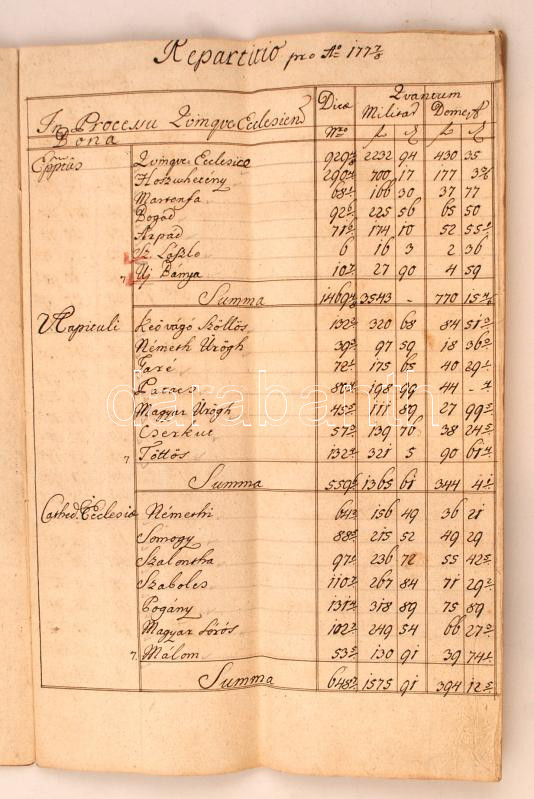 Repartitio pro Ao 177 7/8
In Processu Quinque Ecclesien
Bona
Dicæ
Nro
Quantum
Militar
Domest
f. x f. x
Eppūs Quinque Ecclesiæ 929 2232 94 430 35
Hoszuhetény 290 700 17 177
Martonfa 68 166 30 37 77
Bogád 92 225 56 65 50
Árpád 71 174 10 52 55
Sz. László 6 16 3 2 36
7. Új Bánya 10 27 90 4 59
Summa 1469 3543 - 770 15
Capituli Keövágó Szöllös 132 320 68 84 51
Németh Ürögh 39 97 59 18 36
Garé 72 175 65 40 29
Patacs 80 198 99 44 -
Magyar Ürögh 45 111 89 27 99
Cserkut 57 139 70 38 24
7. Töttös 132 321 5 90 61
Summa 559 1365 61 344 4
Cathed. Ecclesiæ Némethi 64 156 49 36 21
Somogy 88 215 52 49 29
Szalontha 97 236 72 55 42
Szabolcs 110 267 84 71 29
Pogány 131 318 89 75 89
Magyar Sörös 102 249 54 66 27
7. Málom 53 130 91 39 74
Summa 648 1575 91 394 12
darabanth